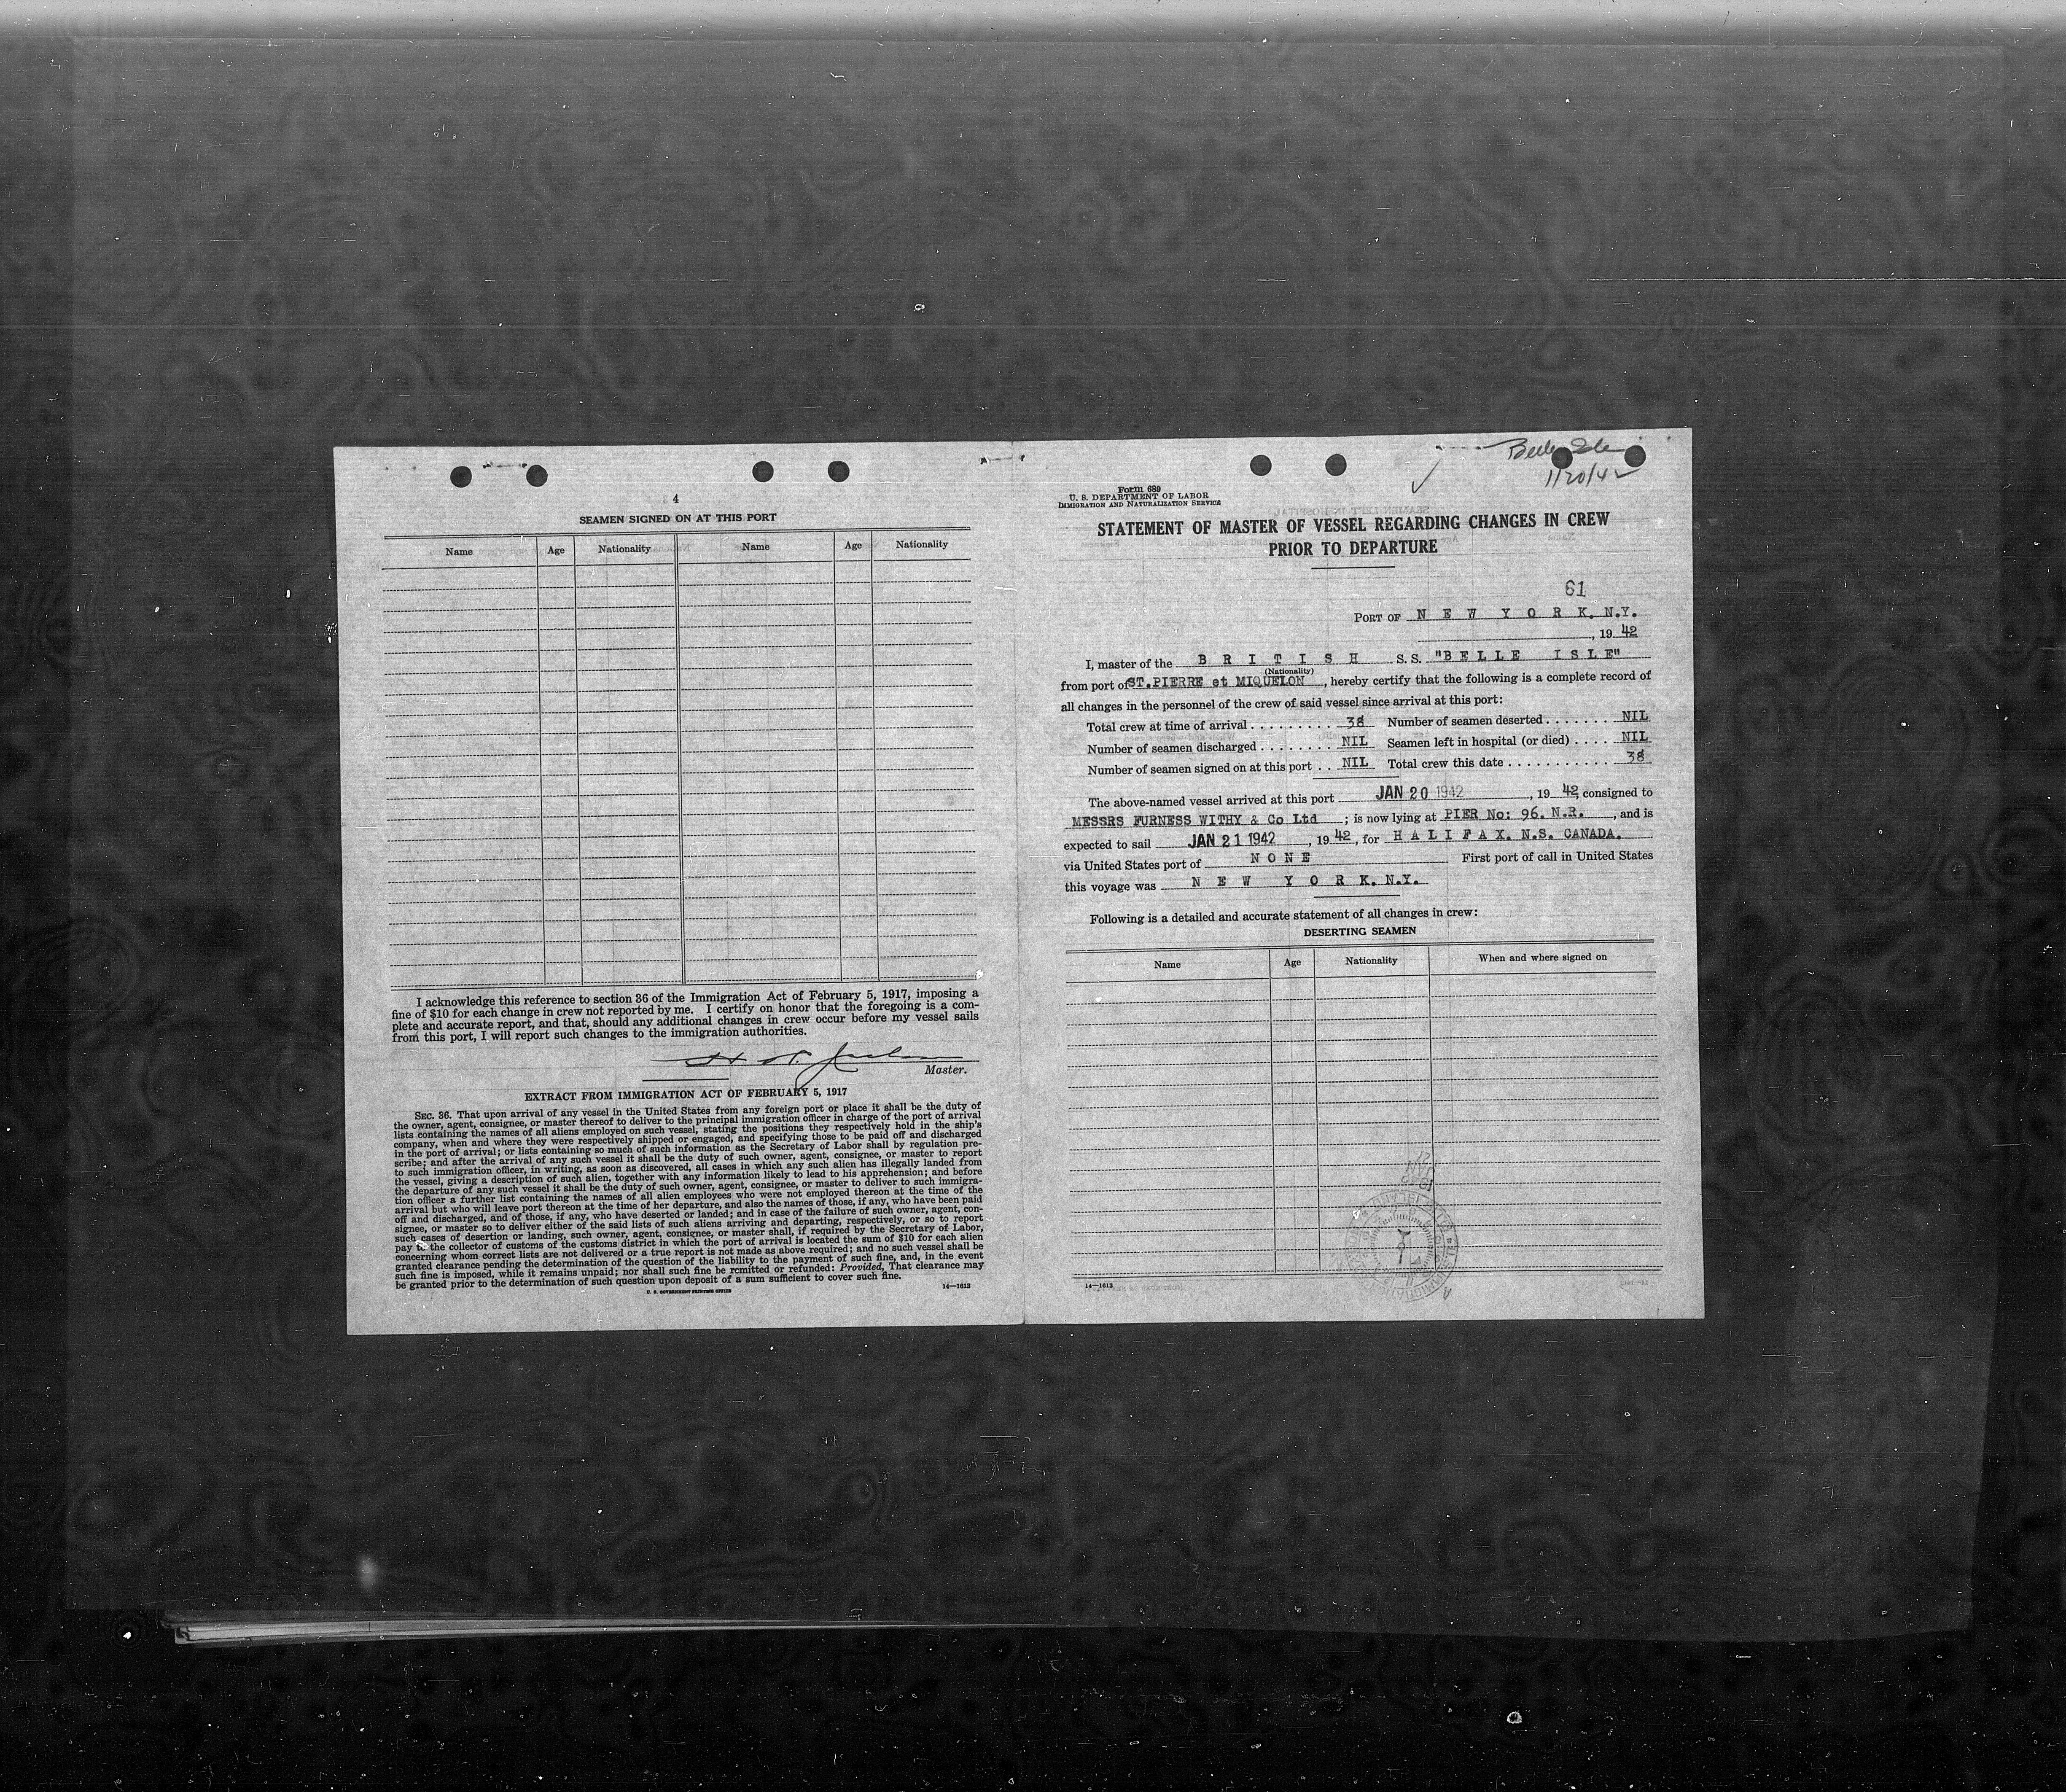 4
SEAMEN SIGNED ON AT THIS PORT
Name Age Nationality Name Age Nationality
I acknowledge this reference to section 36 of the Immigration Act of February 5, 1917, imposing a
fine of $10 for each change in crew not reported by me. I certify on honor that the foregoing is a com-
plete and accurate report, and that, should any additional changes in crew occur before my vessel sails
from this port, I will report such changes to the immigration authorities.
Master.
EXTRACT FROM IMMIGRATION ACT OF FEBRUARY 5, 1917
SEC. 36. That upon arrival of any vessel in the United States from any foreign port or place it shall be the duty of
the owner, agent, consignee, or master thereof to deliver to the principal immigration officer in charge of the port of arrival
lists containing the names of all aliens employed on such vessel, stating the positions they respectively hold in the ship's
company, when and where they were respectively shipped or engaged, and specifying those to be paid off and discharged
in the port of arrival; or lists containing so much of such information as the Secretary of Labor shall by regulation pre-
scribe; and after the arrival of any such vessel it shall be the duty of such owner, agent, consignee, or master to report
to such immigration officer, in writing, as soon as discovered, all cases in which any such alien has illegally landed from
the vessel, giving a description of such alien, together with any information likely to lead to his apprehension; and before
the departure of any such vessel it shall be the duty of such owner, agent, consignee, or master to deliver to such immigra-
tion officer a further list containing the names of all alien employees who were not employed thereon at the time of the
arrival but who will leave port thereon at the time of her departure, and also the names of those, if any, who have been paid
off and discharged, and of those, if any, who have deserted or landed; and in case of the failure of such owner, agent, con-
signee, or master so to deliver either of the said lists of such aliens arriving and departing, respectively, or so to report
such cases of desertion or landing, such owner, agent, consignee, or master shall, if required by the Secretary of Labor,
pay to the collector of customs of the customs district in which the port of arrival is located the sum of $10 for each alien
concerning whom correct lists are not delivered or a true report is not made as above required; and no such vessel shall be
granted clearance pending the determination of the question of the liability to the payment of such fine, and, in the event
such fine is imposed, while it remains unpaid; nor shall such fine be remitted or refunded: Provided, That clearance may
be granted prior to the determination of such question upon deposit of a sum sufficient to cover such fine.
U. S. GOVERNMENT PRINTING OFFICE 14—1613
Belle Isle
1/20/42
Form 689
U. S. DEPARTMENT OF LABOR
IMMIGRATION AND NATURALIZATION SERVICE
STATEMENT OF MASTER OF VESSEL REGARDING CHANGES IN CREW
PRIOR TO DEPARTURE
61
PORT OF N E W Y O R K. N.Y.
, 19 42
I, master of the B R I T I S H S. S. "B E L L E I S L E"
(Nationality)
from port of ST.PIERRE et MIQUELON, hereby certify that the following is a complete record of
all changes in the personnel of the crew of said vessel since arrival at this port:
Total crew at time of arrival . . . . . . . . . 38 Number of seamen deserted . . . . . . . NIL
Number of seamen discharged . . . . . . . . NIL Seamen left in hospital (or died) . . . . NIL
Number of seamen signed on at this port . . NIL Total crew this date . . . . . . . . . . . . 38
The above-named vessel arrived at this port JAN 20 1942, 19 42, consigned to
MESSRS FURNESS WITHY & Co Ltd ; is now lying at PIER No: 96. N.R. , and is
expected to sail JAN 21 1942, 19 42, for H A L I F A X. N.S. CANADA.
via United States port of N O N E First port of call in United States
this voyage was N E W Y O R K. N.Y.
Following is a detailed and accurate statement of all changes in crew:
DESERTING SEAMEN
Name Age Nationality When and where signed on
14—1613